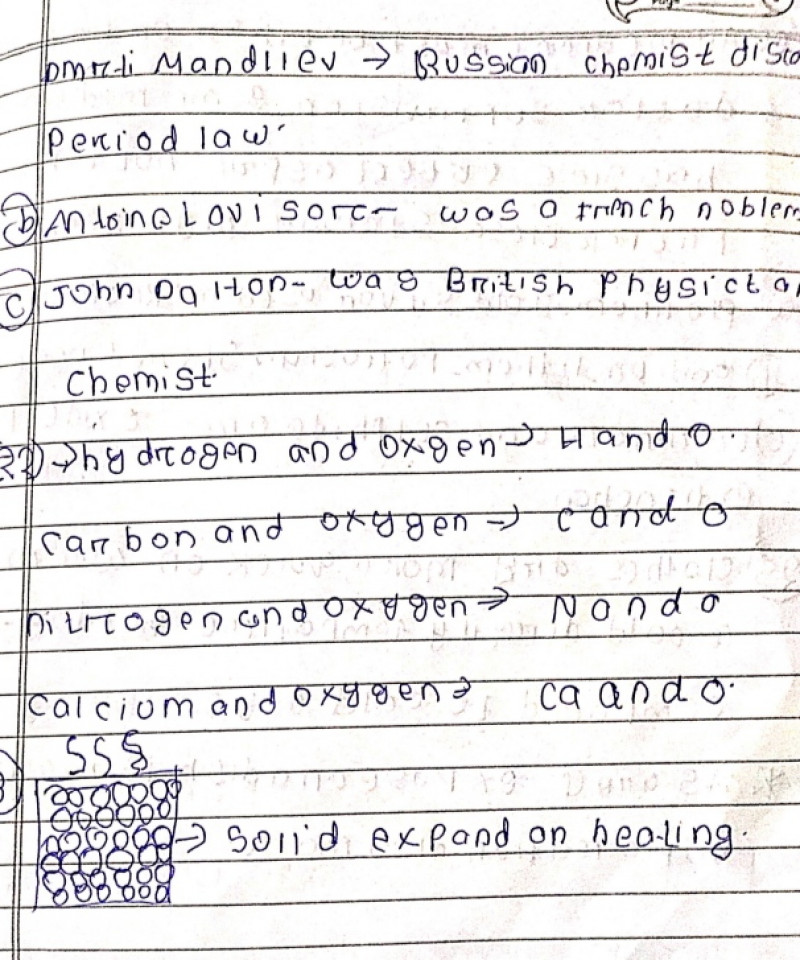 Dmrti Mandliev → Russian chemist disco
Period law.
(b) Antoine Lovi sorc - was a french noblem
(c) John Dalton - was British physicta
Chemist.
→ hydrogen and oxgen → H and O.
carbon and oxygen → C and O
nitrogen and oxygen → N and O
calcium and oxygen → ca and O.
→ solid expand on heating.